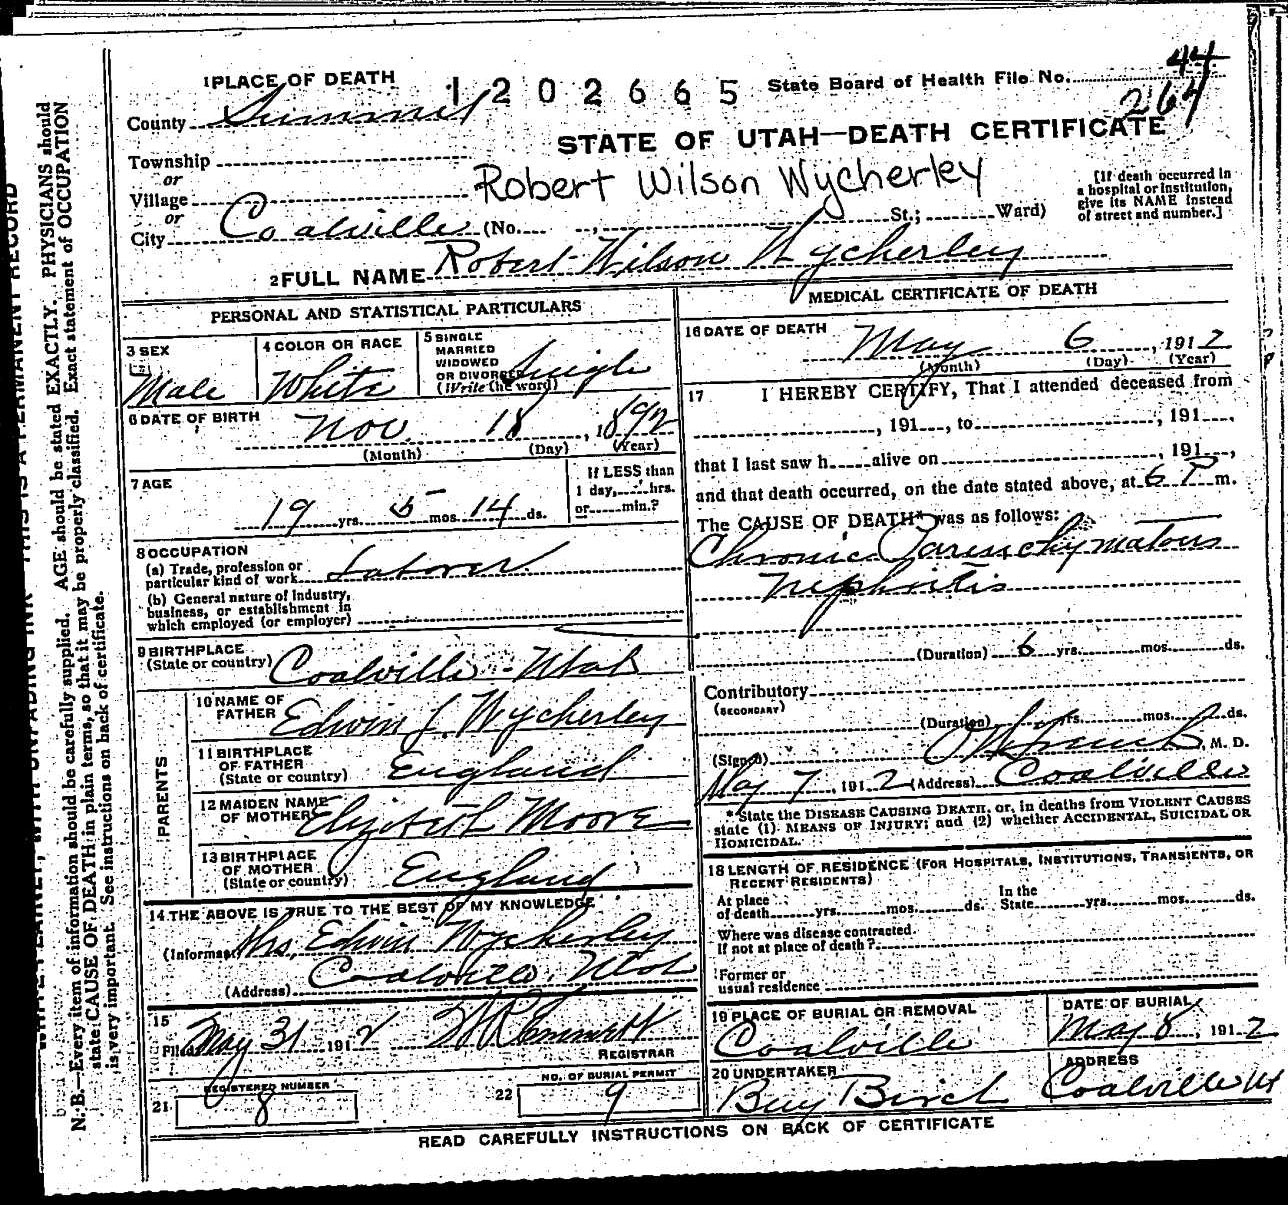 1 PLACE OF DEATH
1202665
State Board of Health File No. 44
264
County Summit
STATE OF UTAH—DEATH CERTIFICATE
Township
or
Village
or
City Coalville (No. , St.; Ward)
Robert Wilson Wycherley
[If death occurred in
a hospital or institution,
give its NAME instead
of street and number.]
2 FULL NAME Robert Wilson Wycherley
PERSONAL AND STATISTICAL PARTICULARS
3 SEX
Male
4 COLOR OR RACE
White
5 SINGLE
MARRIED
WIDOWED
OR DIVORCED
(Write the word)
Single
6 DATE OF BIRTH
Nov. 18, 1892
(Month) (Day) (Year)
7 AGE
19 yrs. 5 mos. 14 ds.
If LESS than
1 day, hrs.
or min.?
8 OCCUPATION
(a) Trade, profession or
particular kind of work Laborer
(b) General nature of Industry,
business, or establishment in
which employed (or employer)
9 BIRTHPLACE
(State or country) Coalville - Utah
PARENTS
10 NAME OF
FATHER Edwin J. Wycherley
11 BIRTHPLACE
OF FATHER
(State or country) England
12 MAIDEN NAME
OF MOTHER Elizabeth Moore
13 BIRTHPLACE
OF MOTHER
(State or country) England
14 THE ABOVE IS TRUE TO THE BEST OF MY KNOWLEDGE
(Informant) Mrs. Edwin Wycherley
(Address) Coalville, Utah
15
Filed May 31 1912
REGISTRAR
REGISTERED NUMBER
21 8
NO. OF BURIAL PERMIT
22 9
MEDICAL CERTIFICATE OF DEATH
16 DATE OF DEATH
May 6, 1912
(Month) (Day) (Year)
17 I HEREBY CERTIFY, That I attended deceased from
, 191 , to , 191 ,
that I last saw h alive on , 191 ,
and that death occurred, on the date stated above, at 6 P m.
The CAUSE OF DEATH* was as follows:
Chronic Parenchymatous
Nephritis
(Duration) 6 yrs. mos. ds.
Contributory
(SECONDARY)
(Duration) yrs. mos. ds.
(Signed) , M. D.
May 7, 1912 (Address) Coalville
*State the DISEASE CAUSING DEATH, or, in deaths from VIOLENT CAUSES
state (1) MEANS OF INJURY; and (2) whether ACCIDENTAL, SUICIDAL OR
HOMICIDAL.
18 LENGTH OF RESIDENCE (FOR HOSPITALS, INSTITUTIONS, TRANSIENTS, OR
RECENT RESIDENTS)
At place
of death yrs. mos. ds.
In the
State yrs. mos. ds.
Where was disease contracted
If not at place of death?
Former or
usual residence
19 PLACE OF BURIAL OR REMOVAL
Coalville
DATE OF BURIAL
May 8, 1912
20 UNDERTAKER
Birch
ADDRESS
Coalville Ut
READ CAREFULLY INSTRUCTIONS ON BACK OF CERTIFICATE
N. B.—Every item of information should be carefully supplied. AGE should be stated EXACTLY. PHYSICIANS should
state CAUSE OF DEATH in plain terms, so that it may be properly classified. Exact statement of OCCUPATION
is very important. See instructions on back of certificate.